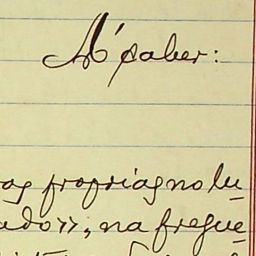 A' saber:
as proprias no lu_
ado», na fregue_